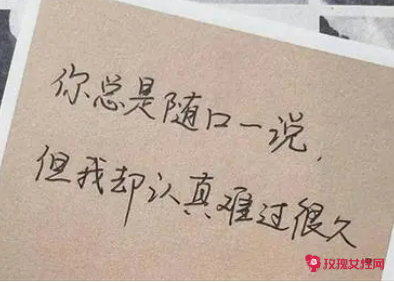 你总是随口一说，
但我却认真难过很久
玫瑰女性网